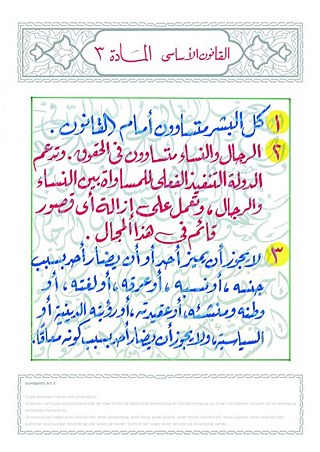 القانون الأساسى المادة ٣
١ كل البشر متساوون أمام القانون .
٢ الرجال والنساء متساوون فى الحقوق . وتدعم
الدولة التنفيذ الفعلى للمساواة بين النساء
والرجال ، وتعمل على إزالة أى قصور
قائم فى هذا المجال .
٣ لا يجوز أن يميز أحد أو أن يضار أحد بسبب
جنسه ، أو نسبه ، أو عرقه ، أو لغته ، أو
وطنه ومنشئه ، أو عقيدته ، أو رؤيته الدينية أو
السياسية ، ولا يجوز أن يضار أحد بسبب كونه معاقًا .
Grundgesetz Art. 3
(1) Alle Menschen sind vor dem Gesetz gleich.